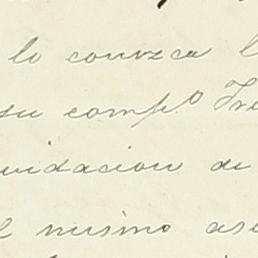 lo conozca l
su comp.º Fre
uidacion de
el mismo ase